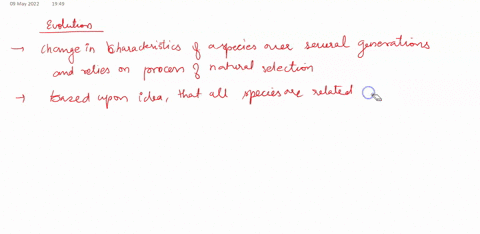 09 May 2022 19:49
Evolution
→ change in characteristics of a species over several generations
and relies on process of natural selection
→ based upon idea, that all species are related